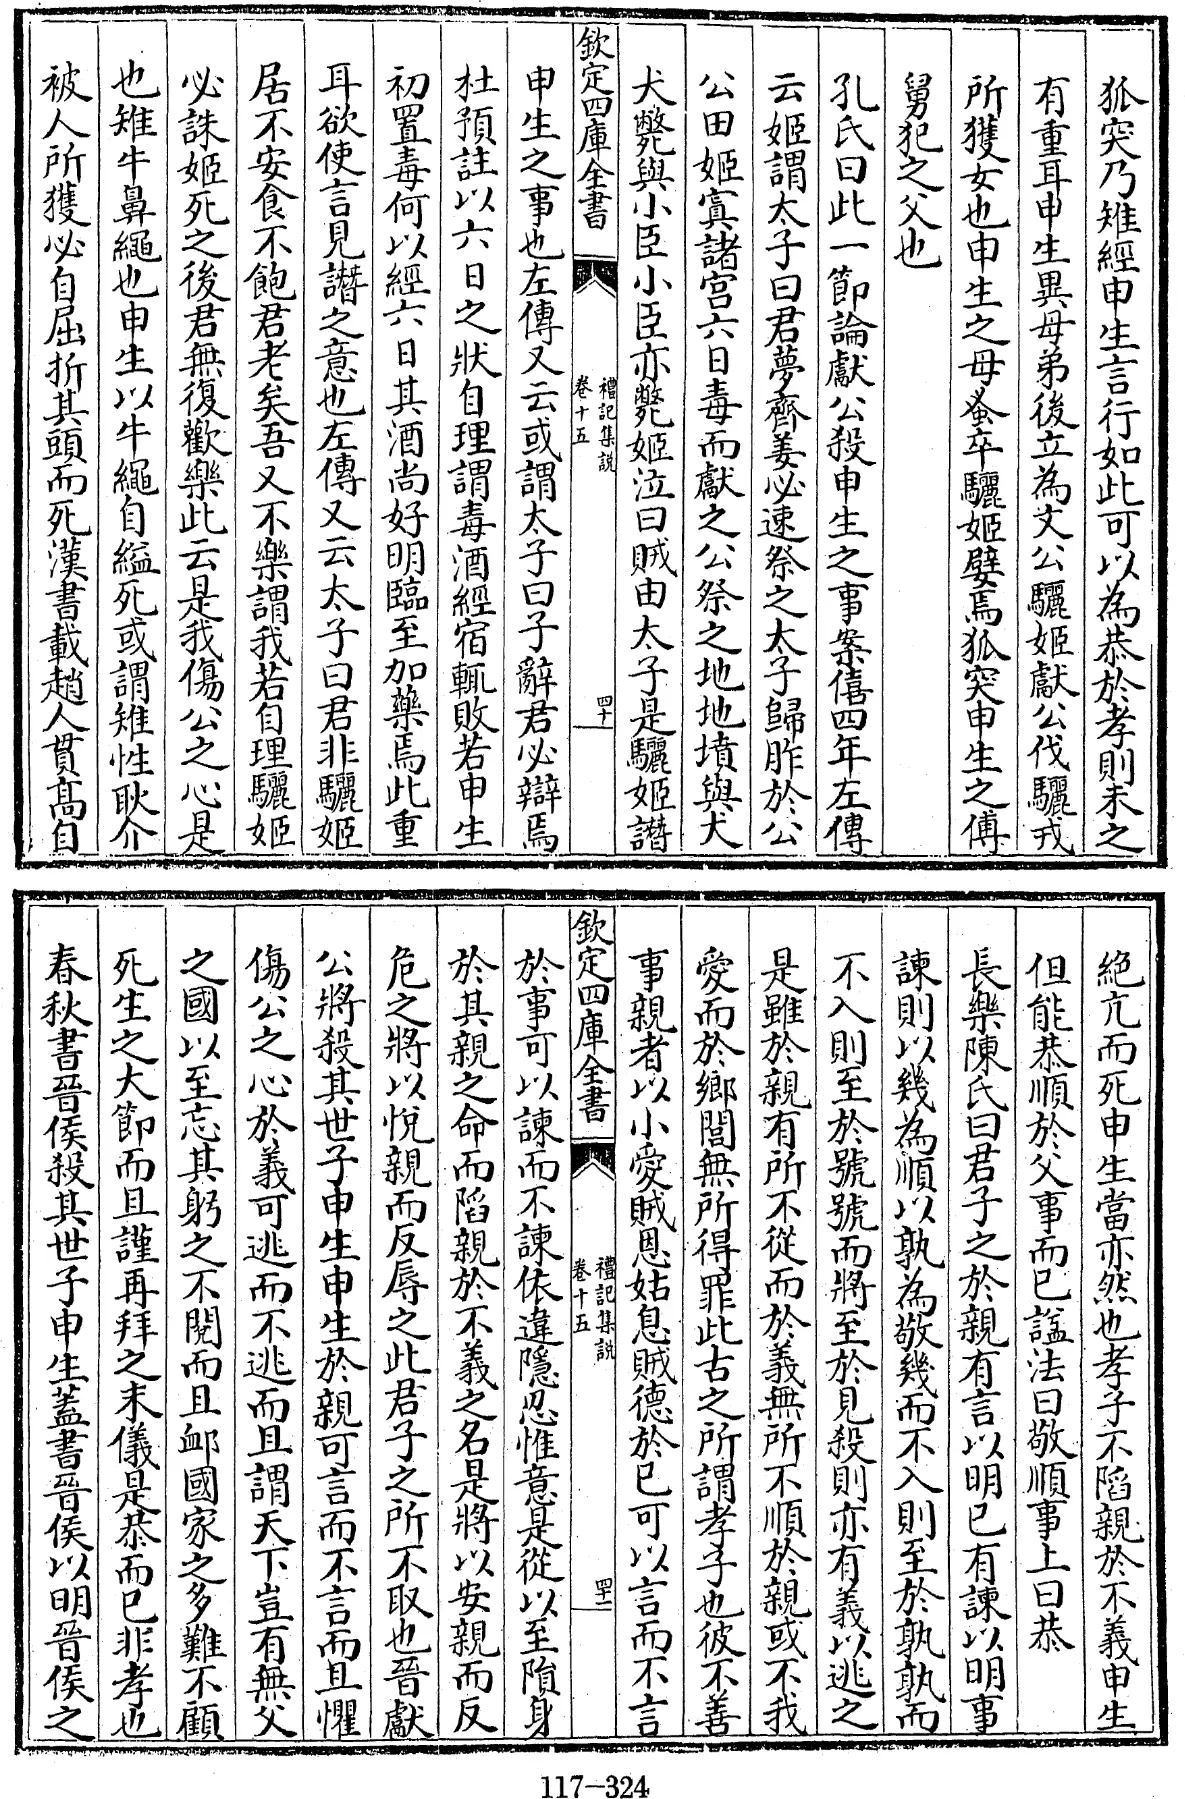 狐突乃雉經申生言行如此可以為恭於孝則未之
有重耳申生異母弟後立為文公驪姬獻公伐驪戎
所獲女也申生之母蚤卒驪姬嬖焉狐突申生之傅
舅犯之父也
孔氏曰此一節論獻公殺申生之事案僖四年左傳
云姬謂太子曰君夢齊姜必速祭之太子歸胙於公
公田姬寘諸宮六日毒而獻之公祭之地地墳與犬
犬斃與小臣小臣亦斃姬泣曰賊由太子是驪姬譖
欽定四庫全書
禮記集說
卷十五
四十
申生之事也左傳又云或謂太子曰子辭君必辯焉
杜預註以六日之狀自理謂毒酒經宿輒敗若申生
初置毒何以經六日其酒尚好明臨至加藥焉此重
耳欲使言見譖之意也左傳又云太子曰君非驪姬
居不安食不飽君老矣吾又不樂謂我若自理驪姬
必誅姬死之後君無復歡樂此云是我傷公之心是
也雉牛鼻繩也申生以牛繩自縊死或謂雉性耿介
被人所獲必自屈折其頭而死漢書載趙人貫髙自
絕亢而死申生當亦然也孝子不陷親於不義申生
但能恭順於父事而已諡法曰敬順事上曰恭
長樂陳氏曰君子之於親有言以明已有諫以明事
諫則以幾為順以孰為敬幾而不入則至於孰孰而
不入則至於號號而將至於見殺則亦有義以逃之
是雖於親有所不從而於義無所不順於親或不我
愛而於鄉閭無所得罪此古之所謂孝子也彼不善
事親者以小愛賊恩姑息賊德於已可以言而不言
欽定四庫全書
禮記集說
卷十五
四十一
於事可以諫而不諫依違隱忍惟意是從以至隕身
於其親之命而陷親於不義之名是將以安親而反
危之將以悅親而反辱之此君子之所不取也晉獻
公將殺其世子申生申生於親可言而不言而且懼
傷公之心於義可逃而不逃而且謂天下豈有無父
之國以至忘其躬之不閱而且䘏國家之多難不顧
死生之大節而且謹再拜之末儀是恭而已非孝也
春秋書晉侯殺其世子申生蓋書晉侯以明晉侯之
117-324